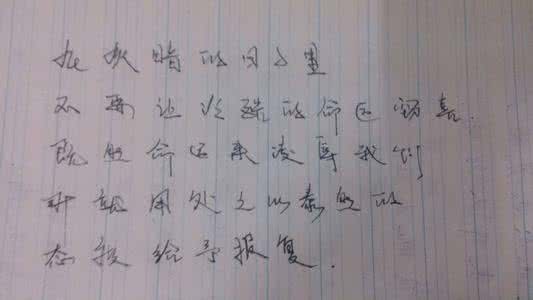 在灰暗的日子里
不要让冷酷的命运窃喜.
既然命运来凌辱我们
就用处之以泰然的
态度给予报复.